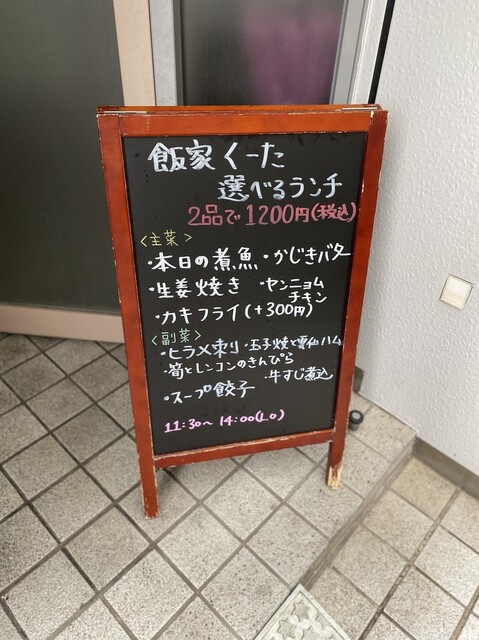 飯家くーた
選べるランチ
2品で1200円(税込)
<主菜>
・本日の煮魚 ・かじきバター
・生姜焼き ・ヤンニョムチキン
・カキフライ(+300円)
<副菜>
・ヒラメ刺 ・玉子焼と雲仙ハム
・筍とレンコンのきんぴら
・牛すじ煮込
・スープ餃子
11:30〜14:00(L.O)